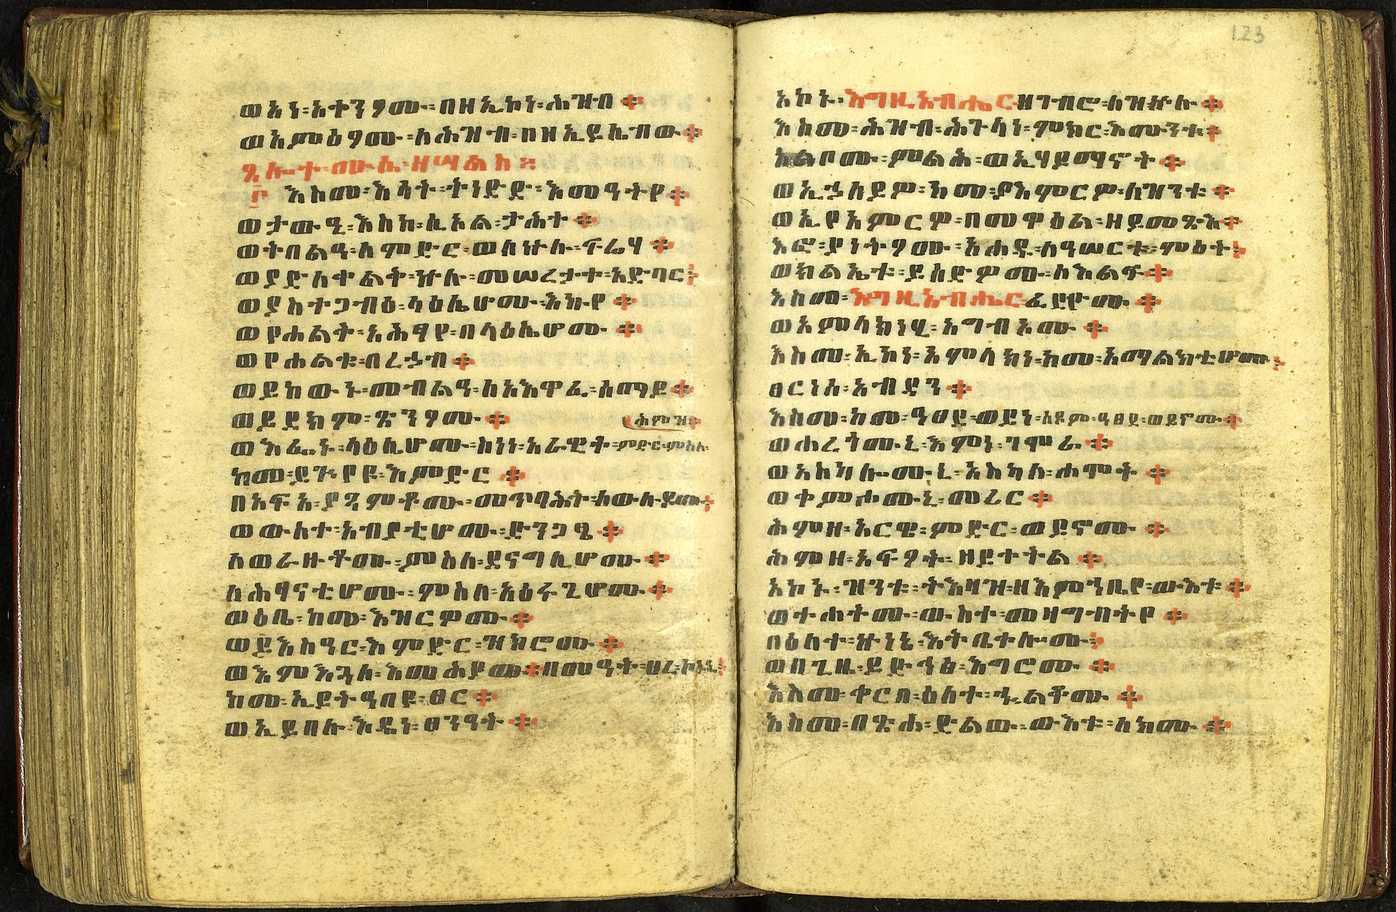 ወአነ፡አቀንዖሙ፡በዘኢኮነ፡ሕዝበ።
ወአምዕዖሙ፡ለሕዝብ፡በዘኢይሌብው።
ጸሎተ፡ሙሴ፡ዘሣልስ፡
፫ እስመ፡እሳት፡ትነድድ፡እመዓትየ።
ወታውዒ፡እስከ፡ሲኦል፡ታሕተ።
ወትበልዓ፡ለምድር፡ወለኵሉ፡ፍሬሃ።
ወያድለቀልቀ፡ኵሉ፡መሠረታተ፡አድባር።
ወያስተጋብዕ፡ላዕሌሆሙ፡እኪየ።
ወየሐልቅ፡አሕፃየ፡በላዕሌሆሙ።
ወየሐልቁ፡በረኃብ።
ወይከውኑ፡መብልዓ፡ለአእዋፈ፡ሰማይ።
ወይደክም፡ጽንዖሙ።
ሕምዝ።
ወእፌኑ፡ላዕሌሆሙ፡ስነነ፡አራዊተ፡ምድር፡ምስለ
ከመ፡ይጕየዩ፡እምድር።
በአፍአ፡ያጼምቶሙ፡መጥባሕት፡ለውሉዶሙ።
ወውስተ፡አብያቲሆሙ፡ድንጋፄ።
ለወራዙቶሙ፡ምስለ፡ደናግሊሆሙ።
ለሕፃናቲሆሙ፡ምስለ፡አዕሩጊሆሙ።
ወዕቤ፡ከመ፡እዝርዎሙ።
ወይእስዓር፡እምድር፡ዝክሮሙ።
ወእምእጓለ፡እመሕያው።በመዓተ፡ፀረ፡
ከመ፡ኢይትዓበዩ፡ፀር።
ወኢይበሉ፡እዴነ፡ፀንዓት።
123
አኮኑ፡እግዚአብሔር፡ዘገብሮ፡ለዝኵሉ።
እስመ፡ሕዝብ፡ሕጉላነ፡ምክር፡እሙንቱ።
አልቦሙ፡ምልሕ፡ወኢሃይማኖት።
ወኢኃለይዎ፡ከመ፡ያእምርዎ፡ለዝንቱ።
ወኢየአምርዎ፡በመዋዕል፡ዘይመጽእ።
እፎ፡ያነትዖሙ፡አሐዱ፡ለዓሠርቱ፡ምዕት።
ወክልኤቱ፡ይሰድዎሙ፡ለእልፍ።
እስመ፡እግዚአብሔር፡ፈደዮሙ።
ወአምላክነሂ፡አግብኦሙ።
እስመ፡ኢኮነ፡አምላክነ፡ከመ፡አማልክቲሆሙ።
ፀርነሰ፡አብዳን።
እስመ፡ከመ፡ዓፀደ፡ወይነ፡ሰዶም፡ዓፀደ፡ወይኖሙ።
ወሐረጎሙኒ፡እምነ፡ጎሞራ።
ወአስካሎሙኒ፡አስካለ፡ሐሞት።
ወቀምሖሙኒ፡መሪር።
ሕምዘ፡አርዌ፡ምድር፡ወይኖሙ።
ሕምዘ፡አፍዖት፡ዘይቀትል።
አኮኑ፡ዝንቱ፡ትእዛዝ፡ዘእምኀቤየ፡ውእቱ።
ወተሐተሙ፡ውስተ፡መዛግብትየ።
በዕለተ፡ኵነኔ፡እትቤቀሎሙ።
ወበጊዜ፡ይድኅፅ፡እግሮሙ።
እስመ፡ቀርበ፡ዕለተ፡ኂልቶሙ።
እስመ፡በጽሐ፡ድልው፡ውእቱ፡ለክሙ።